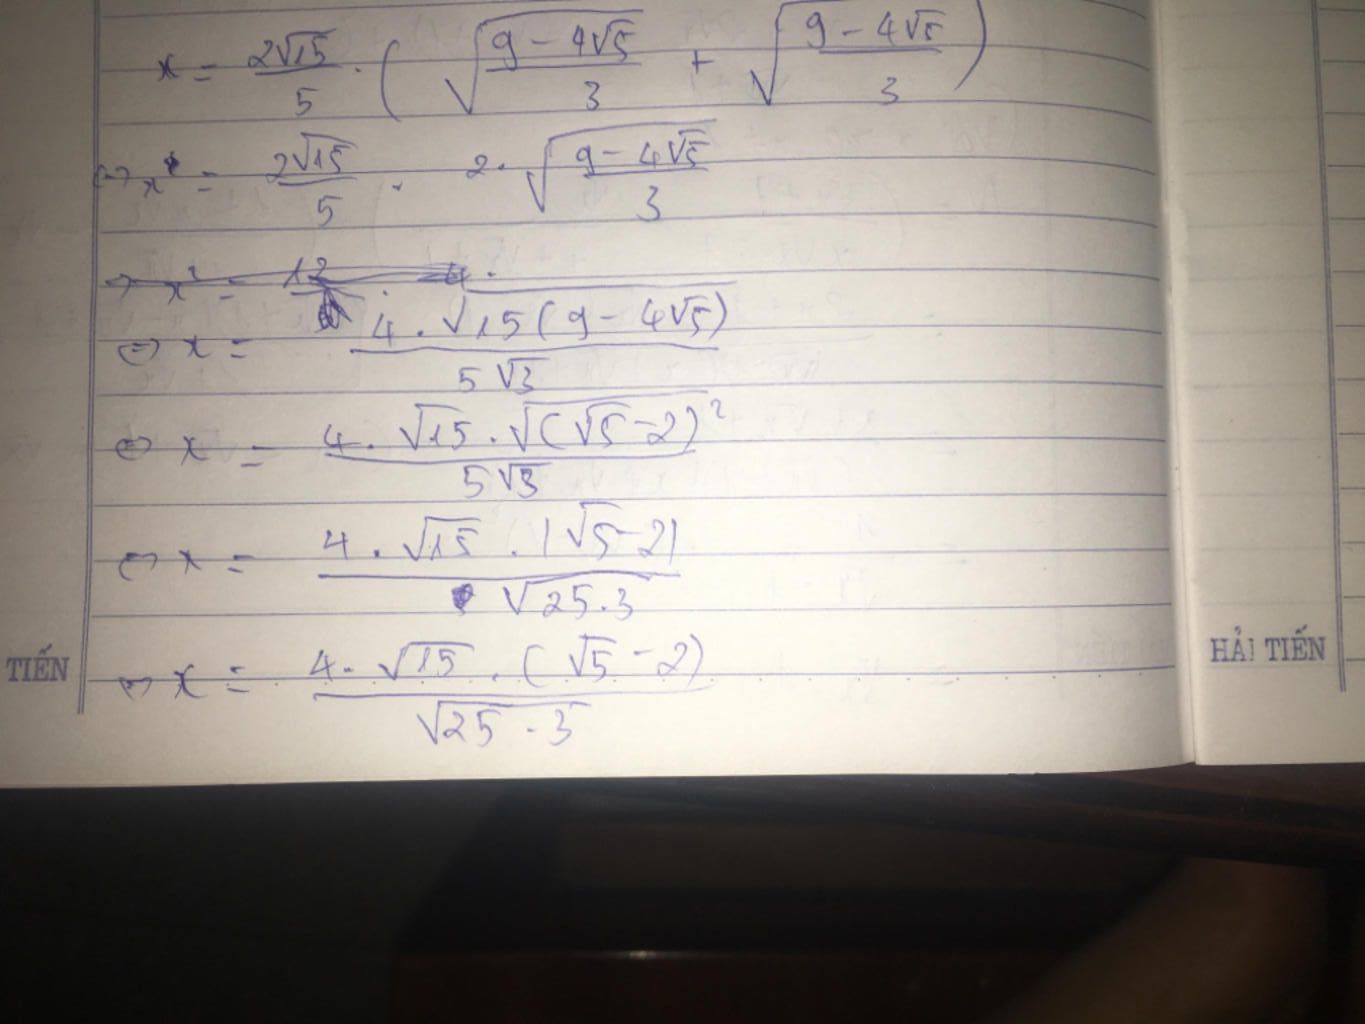 x = 2√15/5 . ( √((9 - 4√5)/3) + √((9 - 4√5)/3) )
<=> x = 2√15/5 . 2. √((9 - 4√5)/3)
=> x² = 12 . 4.
<=> x = 4.√(15(9 - 4√5)) / 5√3
<=> x = 4.√15.√((√5 - 2)²) / 5√3
<=> x = 4.√15.|√5 - 2| / √(25.3)
<=> x = 4.√15.(√5 - 2) / √(25.3)
TIẾN
HẢI TIẾN